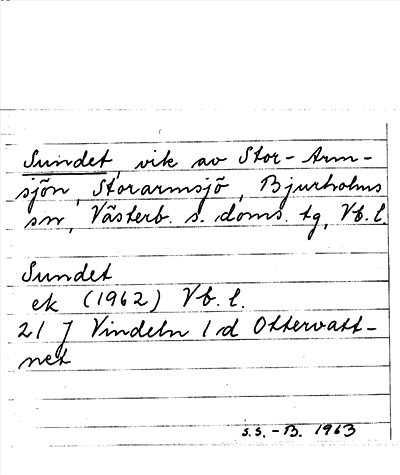 Sundet, vik av Stor-Arm-
sjön, Storarmsjö, Bjurholms
sn, Västerb. s. doms. tg, Vb. l.
Sundet
ek (1962) Vb. l.
21 J Vindeln 1 d Ottervatt-
net
s.s. - B. 1963